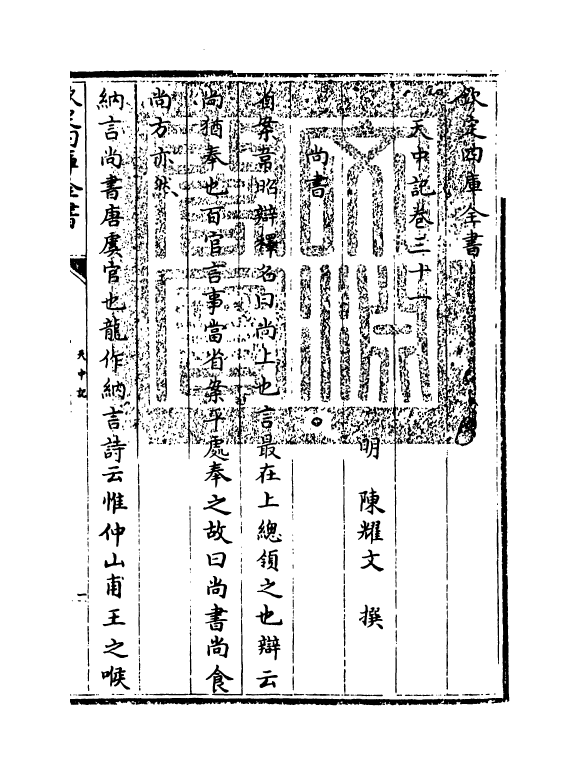 欽定四庫全書
天中記卷三十一
明 陳耀文 撰
尚書
省案韋昭辯釋名曰尚上也言最在上總領之也辯云
尚猶奉也百官言事當省案平處奉之故曰尚書尚食
尚方亦然
納言尚書唐虞官也龍作納言詩云惟仲山甫王之喉
欽定四庫全書
天中記
一